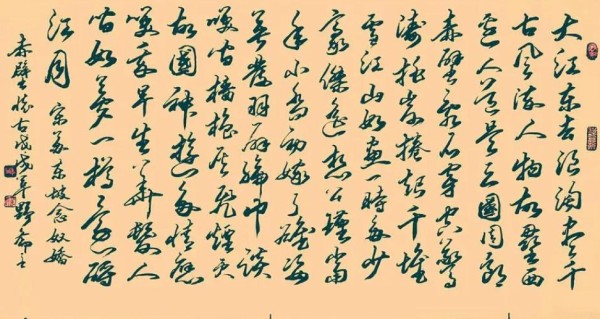 大江东去浪淘尽千
古风流人物故壘西
边人道是三國周郎
赤壁乱石穿空惊
涛拍岸捲起千堆
雪江山如画一时多少
豪傑遥想公瑾当
年小乔初嫁了雄姿
英发羽扇纶巾谈
笑间樯橹灰飞烟灭
故國神游多情应
笑我早生华髮人
间如梦一樽还酹
江月 宋苏东坡念奴娇
赤壁怀古